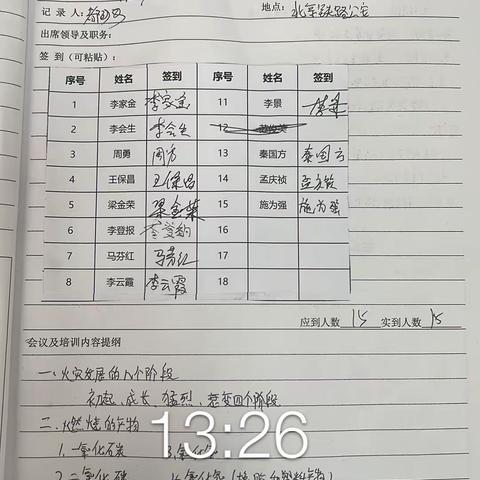 记 录 人：
地点： 北京铁路公安
出席领导及职务：
签 到（可粘贴）：
序号 姓名 签到 序号 姓名 签到
1 李家金 李家金 11 李景 李景
2 李会生 李会生 12
3 周勇 周勇 13 秦国方 秦国方
4 王保昌 王保昌 14 孟庆祯 孟庆祯
5 梁金荣 梁金荣 15 施为强 施为强
6 李登报 李登报 16
7 马芬红 马芬红 17
8 李云霞 李云霞 18
应到人数 15 实到人数 15
会议及培训内容提纲
一、火灾发展的八个阶段
初起、成长、猛烈、衰变四个阶段
二、燃烧的产物
13:26
1.一氧化碳
2.二氧化碳